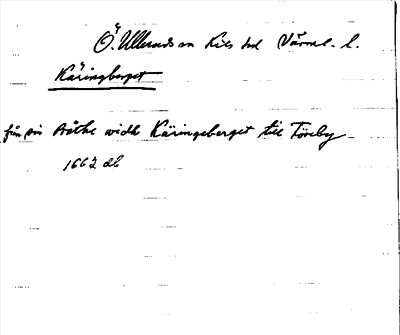 Ö. Ulleruds sn Kils hd Värml. l.
Käringberget
från sin Stätke widh Käringeberget till Töreby
1662 db